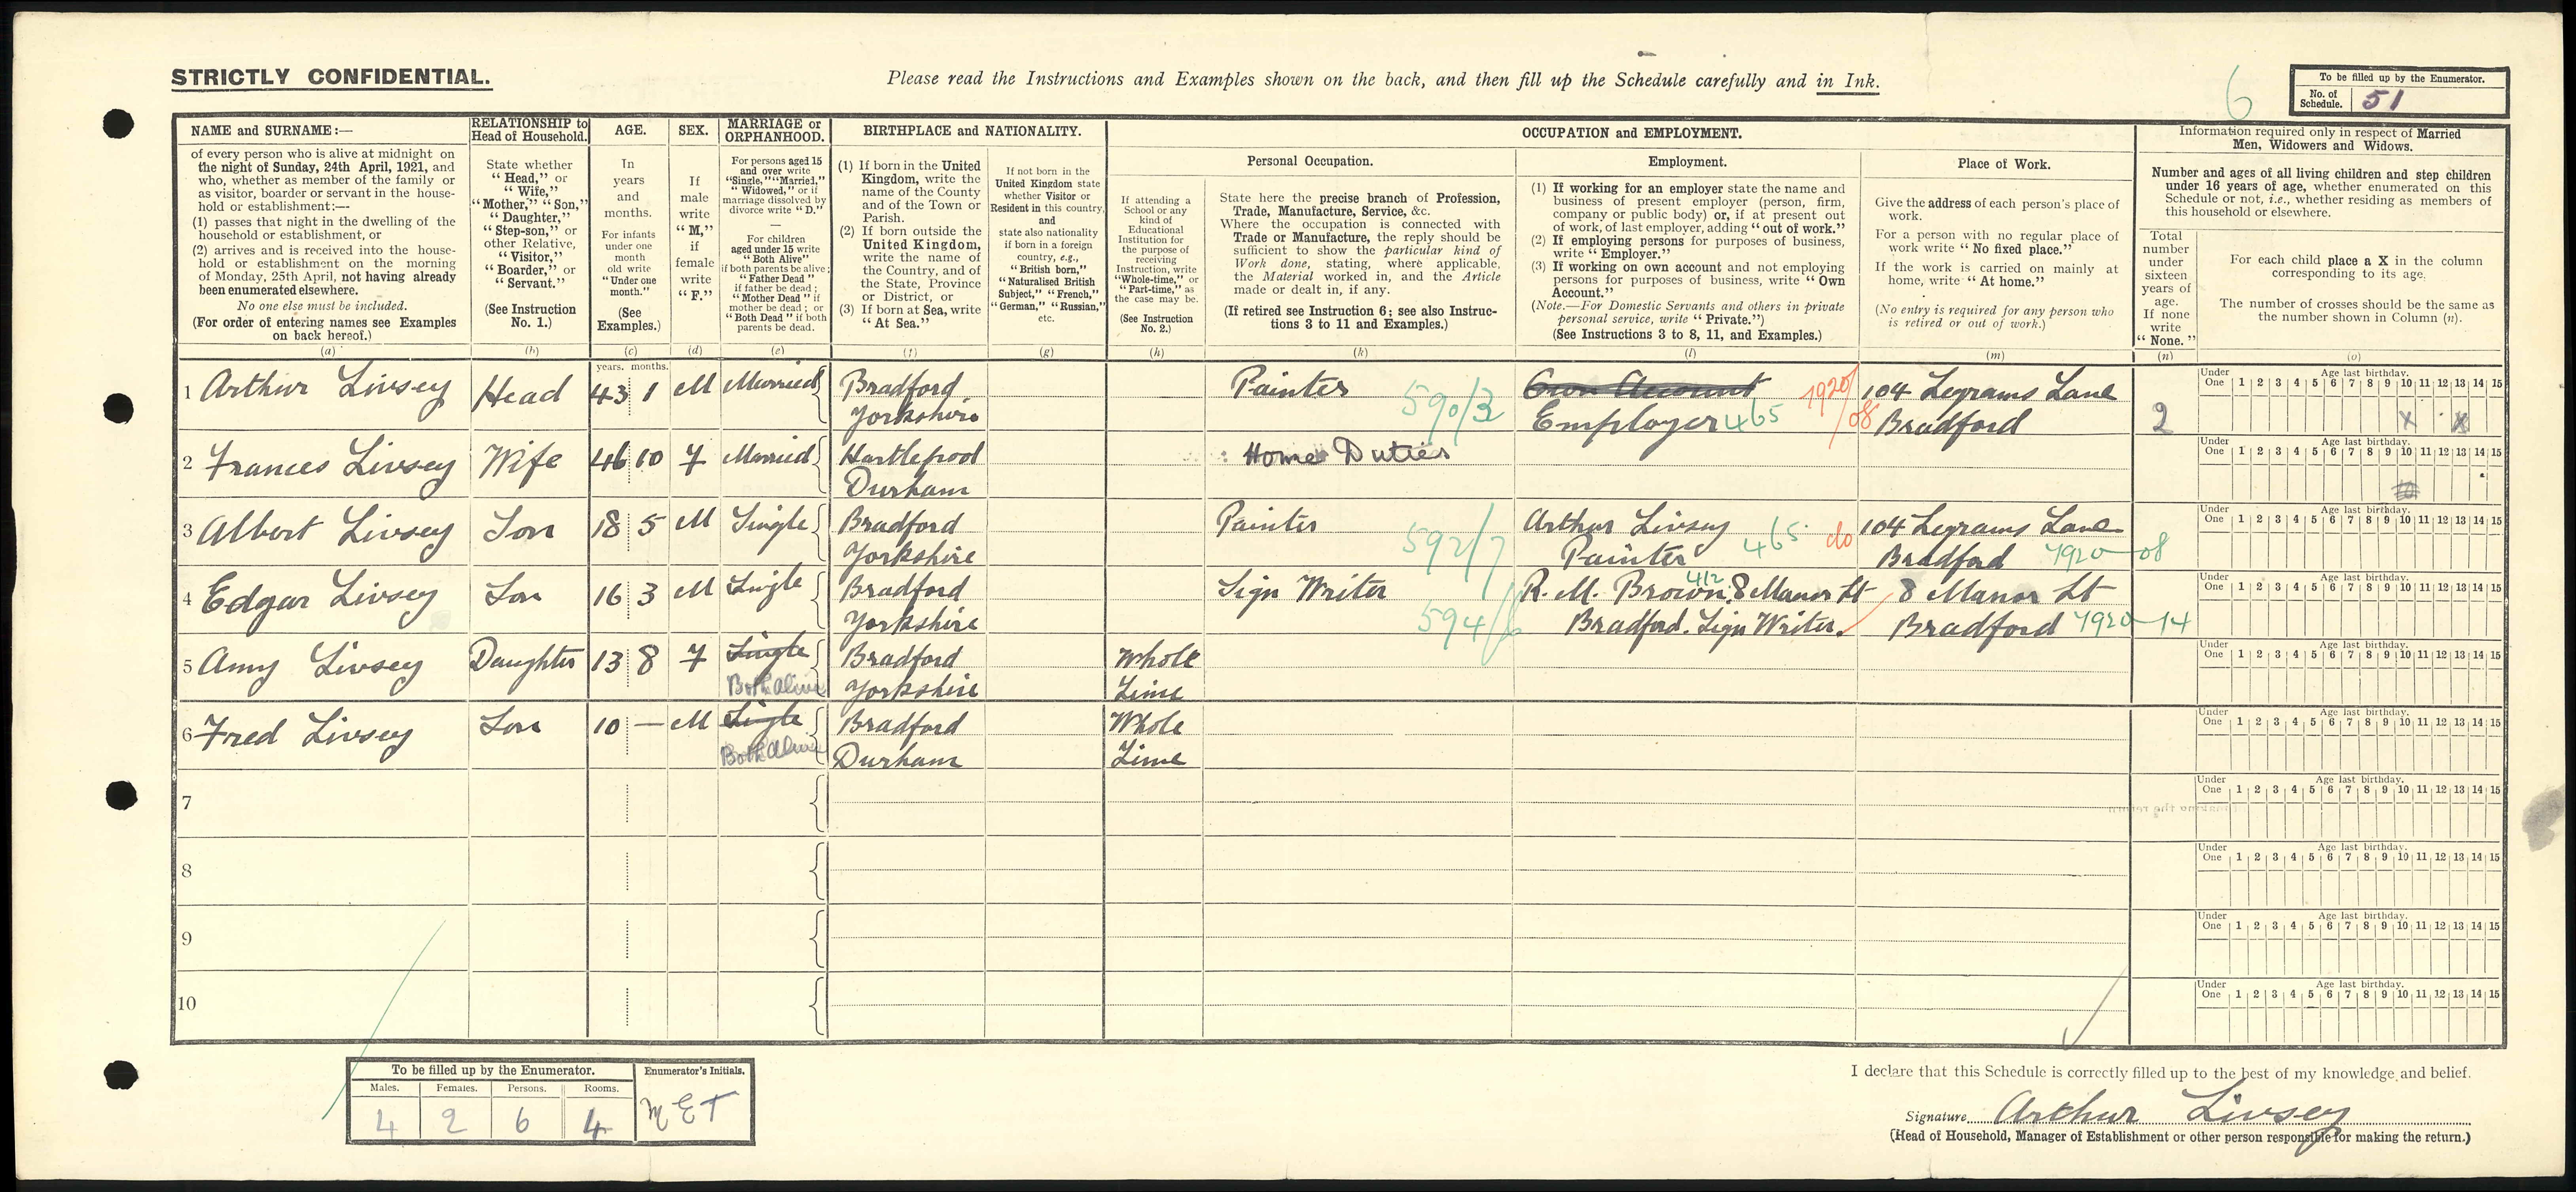 STRICTLY CONFIDENTIAL.
Please read the Instructions and Examples shown on the back, and then fill up the Schedule carefully and in Ink.
6
To be filled up by the Enumerator.
No. of Schedule. 51
NAME and SURNAME:—
of every person who is alive at midnight on
the night of Sunday, 24th April, 1921, and
who, whether as member of the family or
as visitor, boarder or servant in the house-
hold or establishment:—
(1) passes that night in the dwelling of the
household or establishment, or
(2) arrives and is received into the house-
hold or establishment on the morning
of Monday, 25th April, not having already
been enumerated elsewhere.
No one else must be included.
(For order of entering names see Examples
on back hereof.)
(a)
RELATIONSHIP to
Head of Household.
State whether
"Head," or
"Wife,"
"Mother," "Son,"
"Daughter,"
"Step-son," or
other Relative,
"Visitor,"
"Boarder," or
"Servant."
(See Instruction
No. 1.)
(b)
AGE.
In
years
and
months.
For infants
under one
month
old write
"Under one
month."
(See
Examples.)
(c)
years. months.
SEX.
If
male
write
"M,"
if
female
write
"F."
(d)
MARRIAGE or
ORPHANHOOD.
For persons aged 15
and over write
"Single," "Married,"
"Widowed," or if
marriage dissolved by
divorce write "D."
—
For children
aged under 15 write
"Both Alive"
if both parents be alive;
"Father Dead"
if father be dead;
"Mother Dead" if
mother be dead; or
"Both Dead" if both
parents be dead.
(e)
BIRTHPLACE and NATIONALITY.
(1) If born in the United
Kingdom, write the
name of the County
and of the Town or
Parish.
(2) If born outside the
United Kingdom,
write the name of
the Country, and of
the State, Province
or District, or
(3) If born at Sea, write
"At Sea."
(f)
If not born in the
United Kingdom state
whether Visitor or
Resident in this country,
and
state also nationality
if born in a foreign
country, e.g.,
"British born,"
"Naturalised British
Subject," "French,"
"German," "Russian,"
etc.
(g)
OCCUPATION and EMPLOYMENT.
If attending a
School or any
kind of
Educational
Institution for
the purpose of
receiving
Instruction, write
"Whole-time," or
"Part-time," as
the case may be.
(See Instruction
No. 2.)
(h)
Personal Occupation.
State here the precise branch of Profession,
Trade, Manufacture, Service, &c.
Where the occupation is connected with
Trade or Manufacture, the reply should be
sufficient to show the particular kind of
Work done, stating, where applicable,
the Material worked in, and the Article
made or dealt in, if any.
(If retired see Instruction 6; see also Instruc-
tions 3 to 11 and Examples.)
(k)
Employment.
(1) If working for an employer state the name and
business of present employer (person, firm,
company or public body) or, if at present out
of work, of last employer, adding "out of work."
(2) If employing persons for purposes of business,
write "Employer."
(3) If working on own account and not employing
persons for purposes of business, write "Own
Account."
(Note.—For Domestic Servants and others in private
personal service, write "Private.")
(See Instructions 3 to 8, 11, and Examples.)
(l)
Place of Work.
Give the address of each person's place of
work.
For a person with no regular place of
work write "No fixed place."
If the work is carried on mainly at
home, write "At home."
(No entry is required for any person who
is retired or out of work.)
(m)
Information required only in respect of Married
Men, Widowers and Widows.
Number and ages of all living children and step children
under 16 years of age, whether enumerated on this
Schedule or not, i.e., whether residing as members of
this household or elsewhere.
Total
number
under
sixteen
years of
age.
If none
write
"None."
(n)
For each child place a X in the column
corresponding to its age.
The number of crosses should be the same as
the number shown in Column (n).
(o)
1 Arthur Livsey Head 43 1 M Married Bradford Yorkshire Painter 590/3 Own Account Employer 465 1920/08 104 Legrams Lane Bradford 2 X X
Under One 1 2 3 4 5 6 7 8 9 10 11 12 13 14 15 Age last birthday.
2 Frances Livsey Wife 46 10 F Married Hartlepool Durham Home Duties
Under One 1 2 3 4 5 6 7 8 9 10 11 12 13 14 15 Age last birthday.
3 Albert Livsey Son 18 5 M Single Bradford Yorkshire Painter 592/7 Arthur Livsey Painter 465 do 104 Legrams Lane Bradford 7920-08
Under One 1 2 3 4 5 6 7 8 9 10 11 12 13 14 15 Age last birthday.
4 Edgar Livsey Son 16 3 M Single Bradford Yorkshire Sign Writer 594/6 R. M. Brown. 412 8 Manor St Bradford. Sign Writer. 8 Manor St Bradford 7920-14
Under One 1 2 3 4 5 6 7 8 9 10 11 12 13 14 15 Age last birthday.
5 Amy Livsey Daughter 13 8 F Single Both Alive Bradford Yorkshire Whole Time
Under One 1 2 3 4 5 6 7 8 9 10 11 12 13 14 15 Age last birthday.
6 Fred Livsey Son 10 — M Single Both Alive Bradford Durham Whole Time
Under One 1 2 3 4 5 6 7 8 9 10 11 12 13 14 15 Age last birthday.
7
Under One 1 2 3 4 5 6 7 8 9 10 11 12 13 14 15 Age last birthday.
8
Under One 1 2 3 4 5 6 7 8 9 10 11 12 13 14 15 Age last birthday.
9
Under One 1 2 3 4 5 6 7 8 9 10 11 12 13 14 15 Age last birthday.
10
Under One 1 2 3 4 5 6 7 8 9 10 11 12 13 14 15 Age last birthday.
To be filled up by the Enumerator.
Males. Females. Persons. Rooms.
4 2 6 4
Enumerator's Initials.
I declare that this Schedule is correctly filled up to the best of my knowledge and belief.
Signature Arthur Livsey
(Head of Household, Manager of Establishment or other person responsible for making the return.)